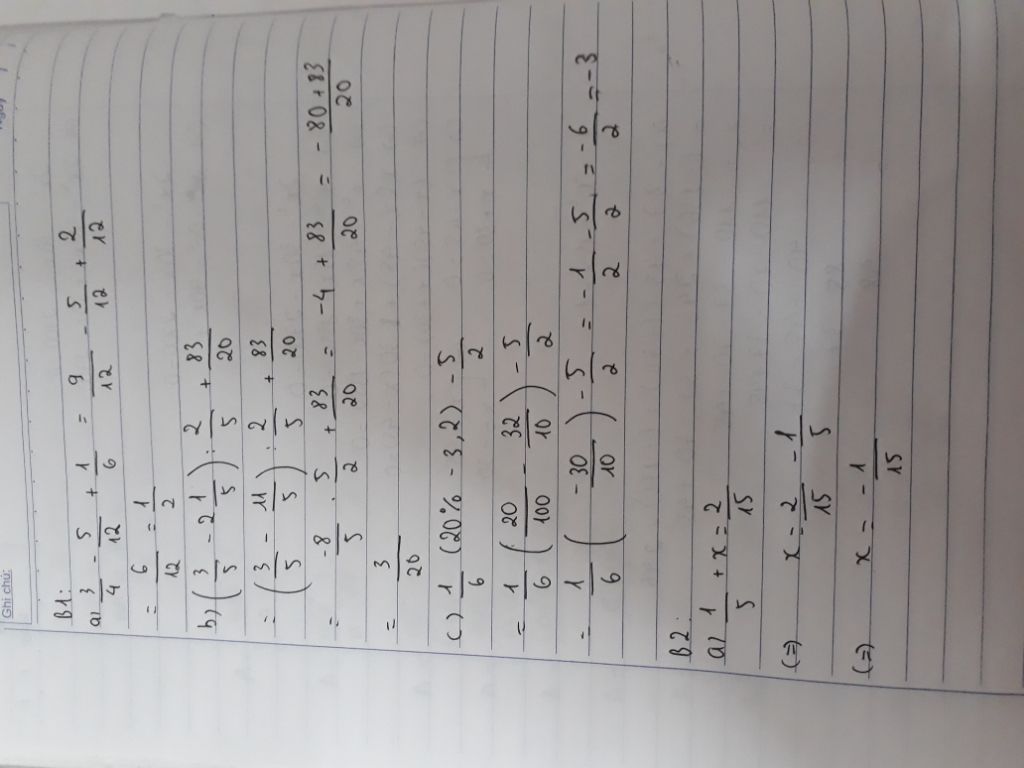 Ghi chú:
Ngày
B1:
a) 3/4 - 5/12 + 1/6 = 9/12 - 5/12 + 2/12
= 6/12 = 1/2
b) (3/5 - 2 1/5) : 2/5 + 83/20
= (3/5 - 11/5) : 2/5 + 83/20
= -8/5 . 5/2 + 83/20 = -4 + 83/20 = -80 + 83/20
= 3/20
c) 1/6 (20% - 3,2) - 5/2
= 1/6 (20/100 - 32/10) - 5/2
= 1/6 (-30/10) - 5/2 = -1/2 - 5/2 = -6/2 = -3
B2:
a) 1/5 + x = 2/15
(=) x = 2/15 - 1/5
(=) x = -1/15